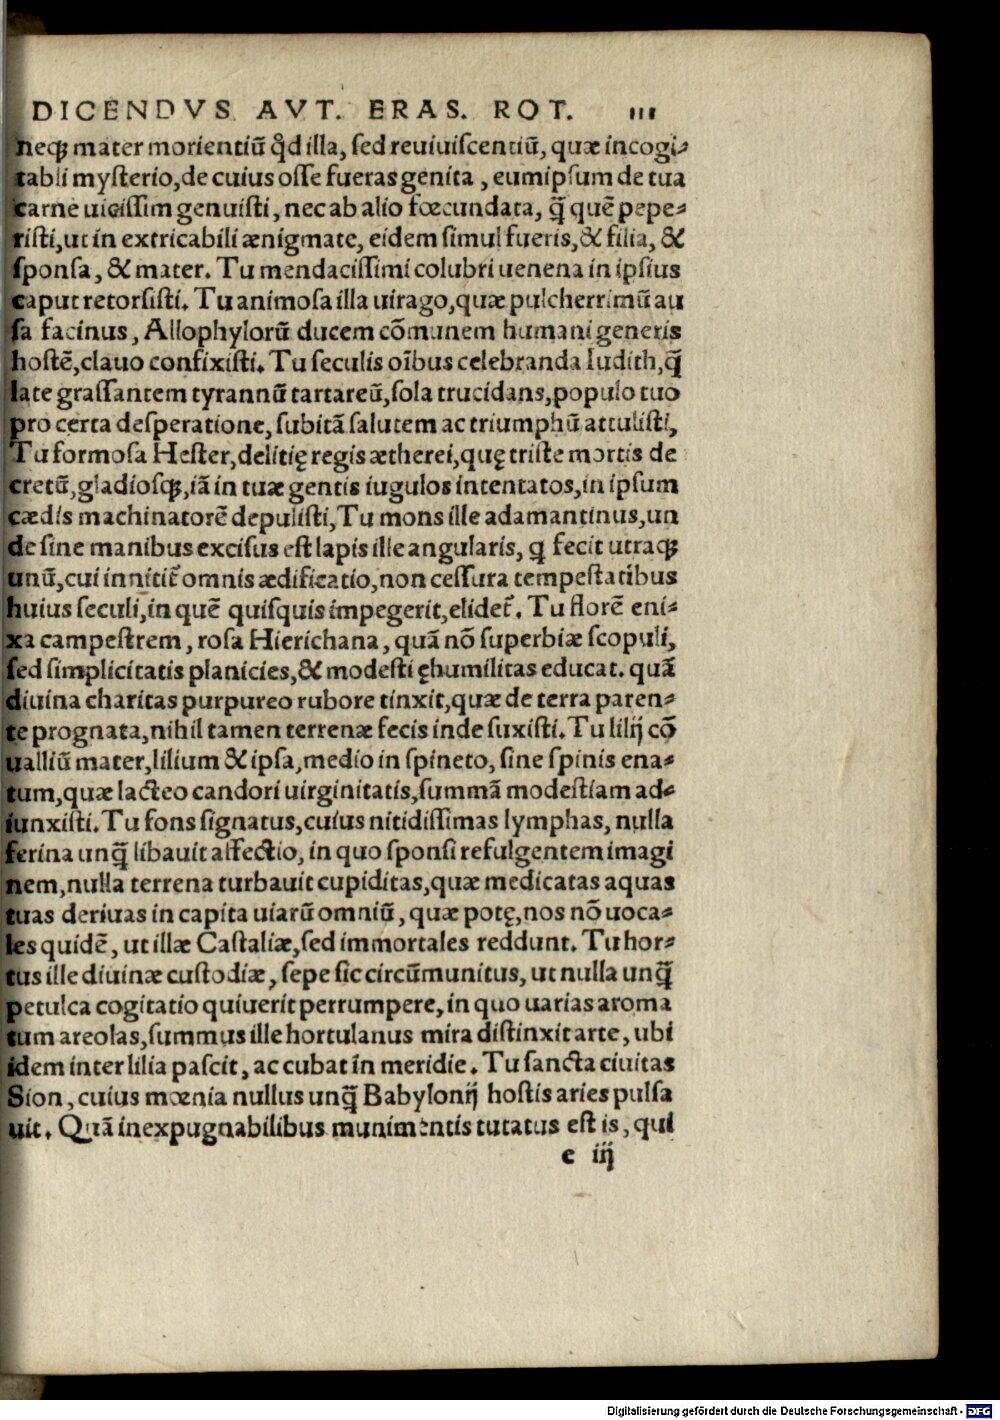 DICENDVS AVT. ERAS. ROT. III
neqꝫ mater morientiũ q̃d illa, sed reuiuiscentiũ, quæ incogi-
tabli mysterio, de cuius osse fueras genita, eumipsum de tua
carne uicissim genuisti, nec ab alio fœcundata, q̃ quẽ pepe-
risti, ut in extricabili ænigmate, eidem simul fueris, & filia, &
sponsa, & mater. Tu mendacissimi colubri uenena in ipsius
caput retorsisti. Tu animosa illa uirago, quæ pulcherrimũ au
sa facinus, Allophylorũ ducem cõmunem humani generis
hostẽ, clauo confixisti. Tu seculis oĩbus celebranda Iudith, q̃
late grassantem tyrannũ tartareũ, sola trucidans, populo tuo
pro certa desperatione, subitã salutem ac triumphũ attulisti,
Tu formosa Hester, delitię regis ætherei, quę triste mortis de
cretũ, gladiosqꝫ, iã in tuæ gentis iugulos intentatos, in ipsum
cædis machinatorẽ depulisti, Tu mons ille adamantinus, un
de sine manibus excisus est lapis ille angularis, q fecit utraqꝫ
unũ, cui innitit᷑ omnis ædificatio, non cessura tempestatibus
huius seculi, in quẽ quisquis impegerit, elidet᷑. Tu florẽ eni-
xa campestrem, rosa Hierichana, quã nõ superbiæ scopuli,
sed simplicitatis planicies, & modesti ęhumilitas educat. quã
diuina charitas purpureo rubore tinxit, quæ de terra paren-
te prognata, nihil tamen terrenæ fecis inde suxisti. Tu lilij cõ
ualliũ mater, lilium & ipsa, medio in spineto, sine spinis ena-
tum, quæ lacteo candori uirginitatis, summã modestiam ad-
iunxisti. Tu fons signatus, cuius nitidissimas lymphas, nulla
ferina unq̃ libauit affectio, in quo sponsi refulgentem imagi
nem, nulla terrena turbauit cupiditas, quæ medicatas aquas
tuas deriuas in capita uiarũ omniũ, quæ potę, nos nõ uoca-
les quidẽ, ut illæ Castaliæ, sed immortales reddunt. Tu hor-
tus ille diuinæ custodiæ, sepe sic circũmunitus, ut nulla unq̃
petulca cogitatio quiuerit perrumpere, in quo uarias aroma
tum areolas, summus ille hortulanus mira distinxit arte, ubi
idem inter lilia pascit, ac cubat in meridie. Tu sancta ciuitas
Sion, cuius mœnia nullus unq̃ Babylonij hostis aries pulsa
uit. Quã inexpugnabilibus munimentis tutatus est is, qui
e iij
Digitalisierung gefördert durch die Deutsche Forschungsgemeinschaft - DFG